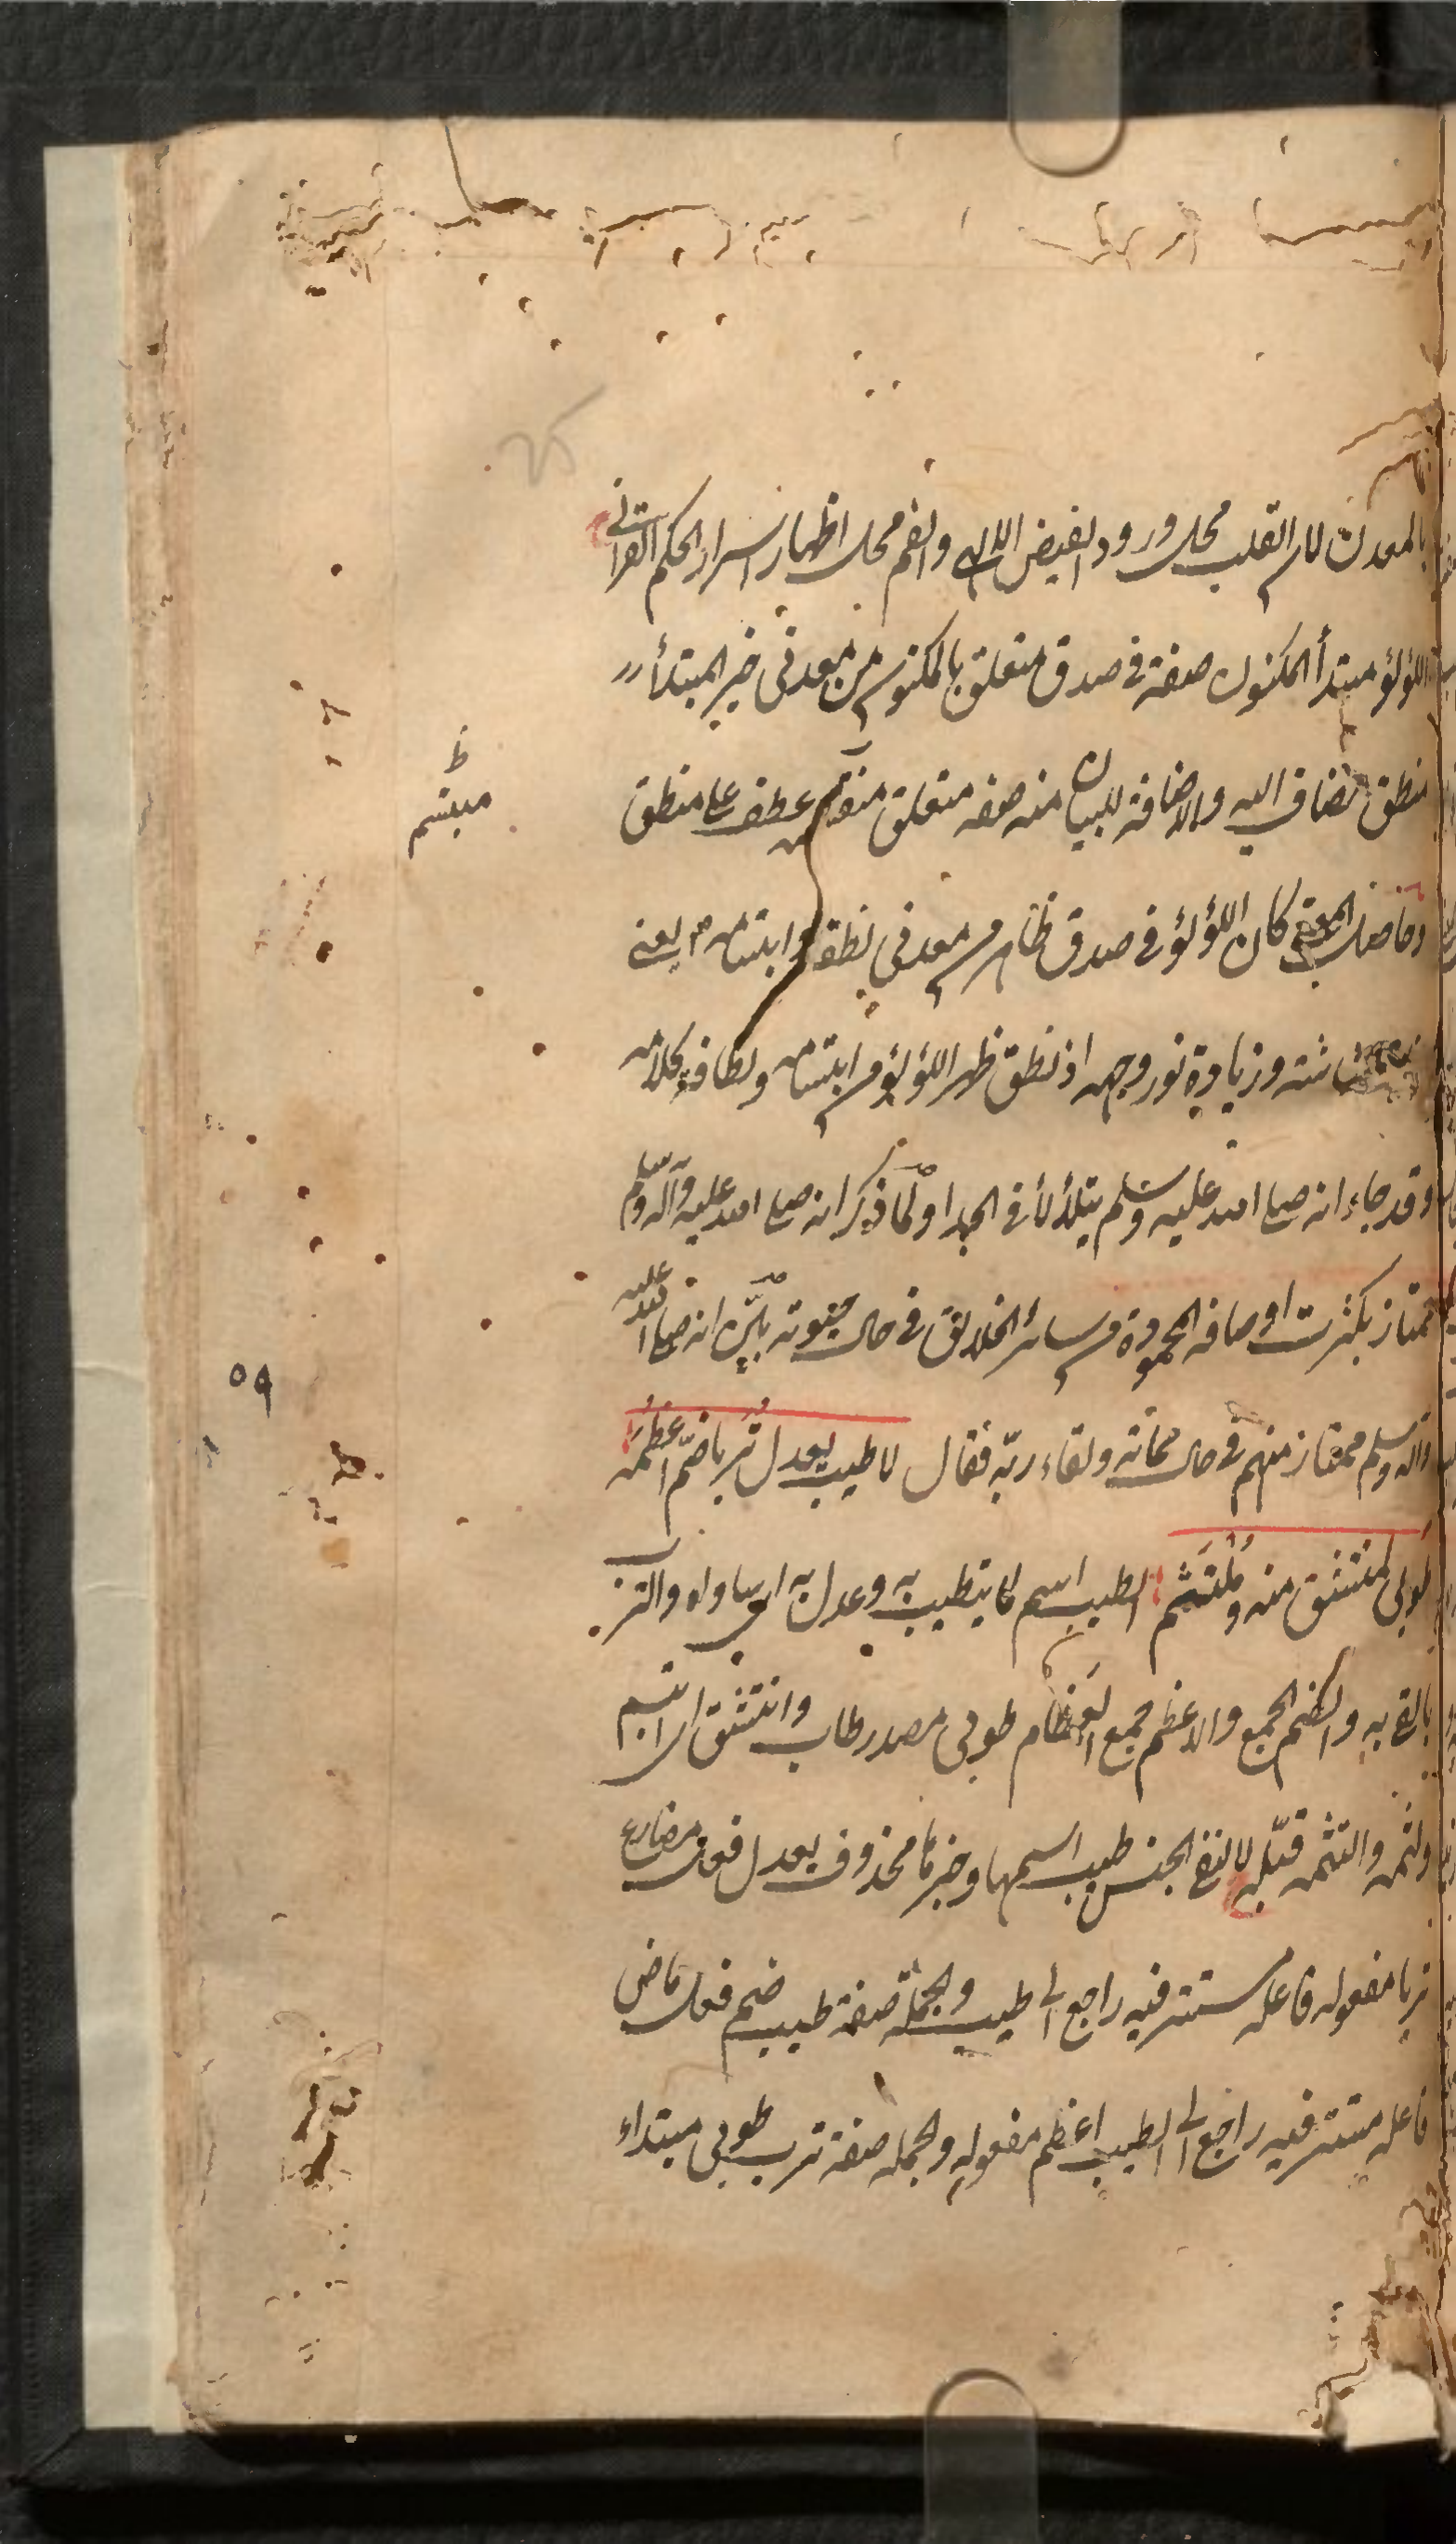 بالمعدن لان القلب محل ورود الفيض الالهى والفم محل اظهار اسرار الحكم القرآنى
اللؤلؤ مبتدأ المكنون صفة فى صدف متعلق بالمكنون من معدنى خبر المبتدأ
منطق مضاف اليه والاضافة للبيان منه صفه متعلق عطف على منطق
مبتسم
وحاصل المعنى كان اللؤلؤ فى صدف ظاهر من معدنى نطقه وابتسامه يعنى
وزيادة نور وجهه اذ نطق ظهر اللؤلؤ من ابتسامه ولطافة كلامه
وقد جاء انه صلى الله عليه وسلم يتلألأ فى الجدا ولما ذكر انه صلى الله عليه وآله وسلم
ممتاز بكثرت اوصافه المحمودة من سائر الخلايق فى حال حيوته بين انه صلى الله عليه
وآله وسلم ممتاز منهم فى حال مماته ولقاء ربه فقال لا طيب يعدل تربا ضم اعظمه
٥٩
طوبى لمنتشق منه وملتثم الطيب اسم لما يتطيب به وعدل به اى ساواه والترب
والضم الجمع والاعظم جمع العظام طوبى مصدر طاب وانتشق اى اشم
ولثمه والتثمه قبله لا لنفى الجنس طيب اسمها وخبرها محذوف يعدل فعل مضارع
تربا مفعوله فاعله مستتر فيه راجع الى طيب والجملة صفة طيب ضم فعل ماض
فاعله مستتر فيه راجع الى الطيب اعظم مفعوله والجمله صفة ترب طوبى مبتداء